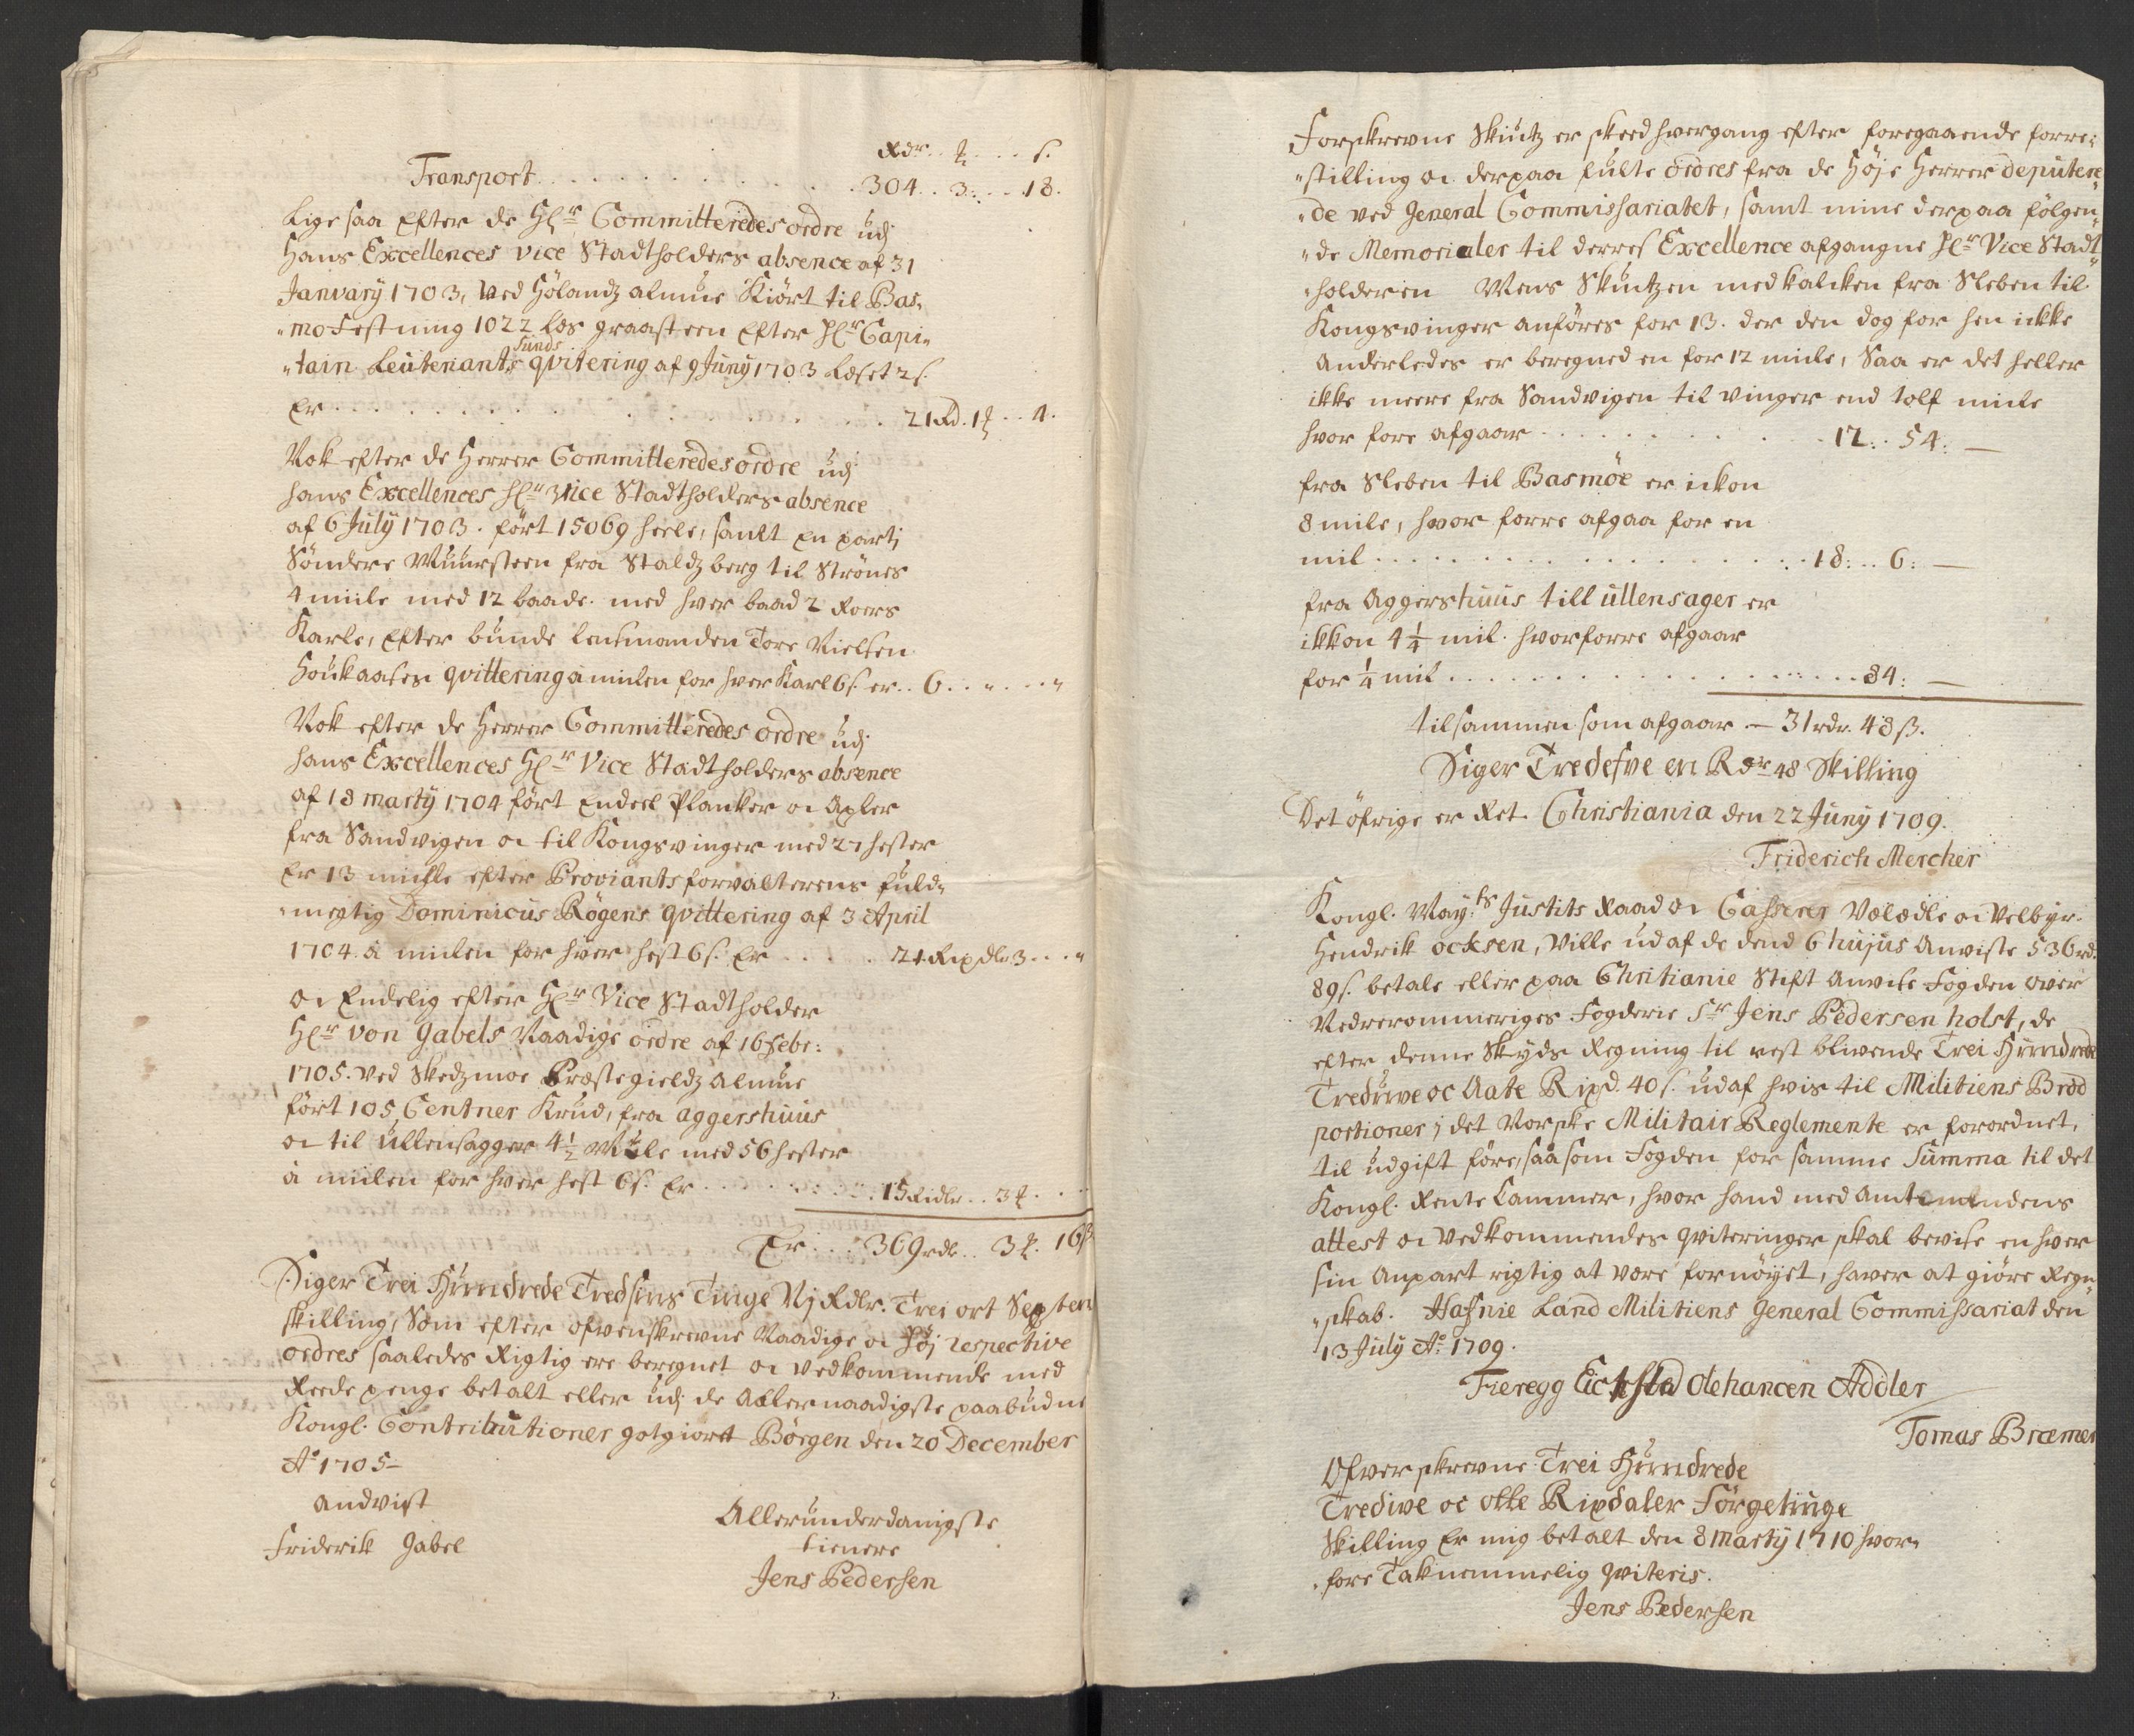 Rdr. . ʒ . . . s.
Transport . . . . . . . . . . 304 . . 3: . . 18.
Lige saa Efter de Hl:r Committeredes ordre udj
Hans Excellences vice Stadtholders absence af 31
January 1703, Ved Hölandz almue Kiört til Bas„
„mo Festning 1022 Les graasteen Efter Hl:r Capi„
„tain Leutenants Funds qvitering af 9 Juny 1703 Leset 2 s.
Er . . . . . . . . . . 21 Rd. 1 ʒ . . 4.
Nok efter de Herrer Committeredes ordre udj
hans Excellences Hl:r Vice Stadtholders absence
af 6 July 1703. fört 15069 heele, samt En partj
Söndere Muursteen fra Staldzberg til Strönes
4 miile med 12 baade. med hver baad 2 Roers
Karle, Efter bunde lensmanden Tore Nielsen
Houkaasen qvittering â miilen for hver Karl 6 s. er . . 6 . . „ . . . „
Nok efter de Herrer Committeredes ordre udj
hans Excellences Hl:r Vice Stadtholders absence
af 18 marty 1704 fört Endeel Planker oc Axler
fra Sandvigen oc til Kongsvinger med 27 hester
Er 13 miihle efter Proviantsforvalterens fuld„
„megtig Dominicus Rögens qvittering af 3 April
1704. â miilen for hver hest 6 s. Er . . . . . 21. Rixdlr 3 . . . „
oc Endelig efter Hl:r Vice Stadtholder
Hl:r von Gabels Naadige ordre af 16 Febr:
1705. ved Skedzmoe Præstegieldz Almue
fört 105 Centner Krud, fra aggershuus
oc til Ullensagger 4 1/2 Miile med 56 hester
â miilen for hver hest 6 s. Er . . . . . . . . 15 Ridlr . . 3 ʒ . . .
Er . . . 369 rdlr . . 3 ʒ. 16 ß
Siger Trei Hundrede Tredsins Tinge Nj Rdlr. Trei ort Sexten
skilling, Som efter ofvenskrevne Naadige oc Höj respective
ordres saaledes Rigtig ere beregnet oc vedkommende med
Reede penge betalt eller udj de Allernaadigste paabudne
Kongl. Contributioner gotgiortt Börgen den 20 December
A:o 1705-
andvist
Friderik Gabel
Allerunderdanigste
tienere
Jens Pedersen
Forskrevne Skiutz er skeed hvergang efter foregaaende forre„
„stilling oc derpaa fulte ordres fra de Höje Herrer deputere„
„de ved General Commissariatet, samt mine derpaa fölgen„
„de Memorialer til derres Excellence afgangne Hl:r Vice Stadt„
„holderen Mens Skiutzen med kalcken fra Sleben til
Kongsvinger anföres for 13. der den dog for hen ickke
Anderledes er beregneden for 12 miile, Saa er det heller
ikke meere fra Sandvigen til vinger end tolf miile
hvor fore afgaar . . . . . . . . 12. . 54. —
fra Sleben til Basmöe er ickon
8 miile, hvor forre afgaa for en
mil . . . . . . . . . . . . . 18: . . 6: —
fra Aggershuus till ullensager er
ikkon 4 1/4 mil. hvorforre afgaar
for 1/4 mil . . . . . . . . . . . . 84: —
tilsammen som afgaar — 31 rdr. 48 ß.
Siger Tredefve en Rdr 48 Skilling
Det öfrige er Ret. Christiania den 22 Juny 1709.
Friderich Mercher
Kongl. May:ts Justits Raad oc Casserer Vælædle oc Velbyr.
Hendrik ocksen, Ville ud af de dend 6 hujus Anviste 536 rd.
89 s. betale eller paa Chritianie Stift Anvise Fogden over
Nedreromeriges Fogderie S:r Jens Pedersen holst, de
efter denne Skyds Regning til rest blivende Trei Hundrede
Tredurve oc Aate Rixd. 40 s. ud af hvis til Militiens Bröd
portioner j det Norske Militair Reglemente er forordnet,
til udgift före, saasom Fogden for samme Summa til det
Kongl. Rente Cammer, hvor hand med Amtmandens
attest oc vedkommendes qviteringer skal bevise en hver
sin Anpart rigtig at være fornöyet, haver at giöre Regn„
„skab. Hafnie Land Militiens General Commissariat den
13 July A:o 1709.
Fieregg Eickstad Olehancen Addler
Tomas Bræmer
Ofverskrevne Trei Hundrede
Tredive oc otte Rixdaler Förgetinge
Skilling Er mig betalt den 8 marty 1710 hvor„
„fore Taknemmelig qviteris.
Jens Pedersen